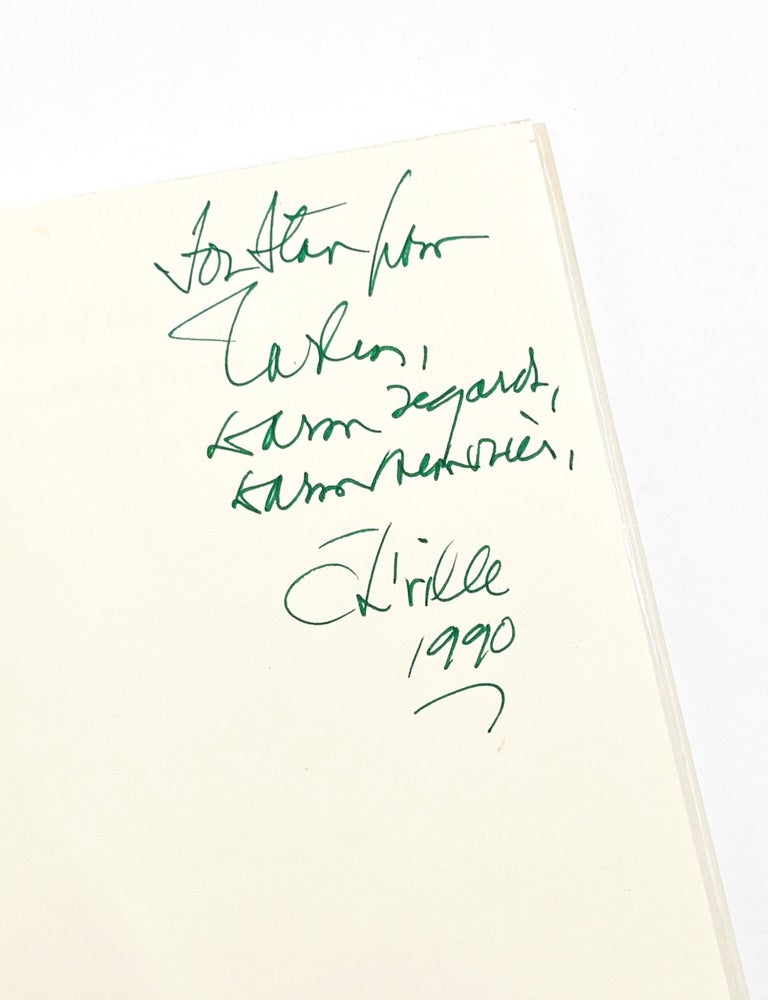 For Stan from
warm regards,
warm memories,
Ch'ville
1990